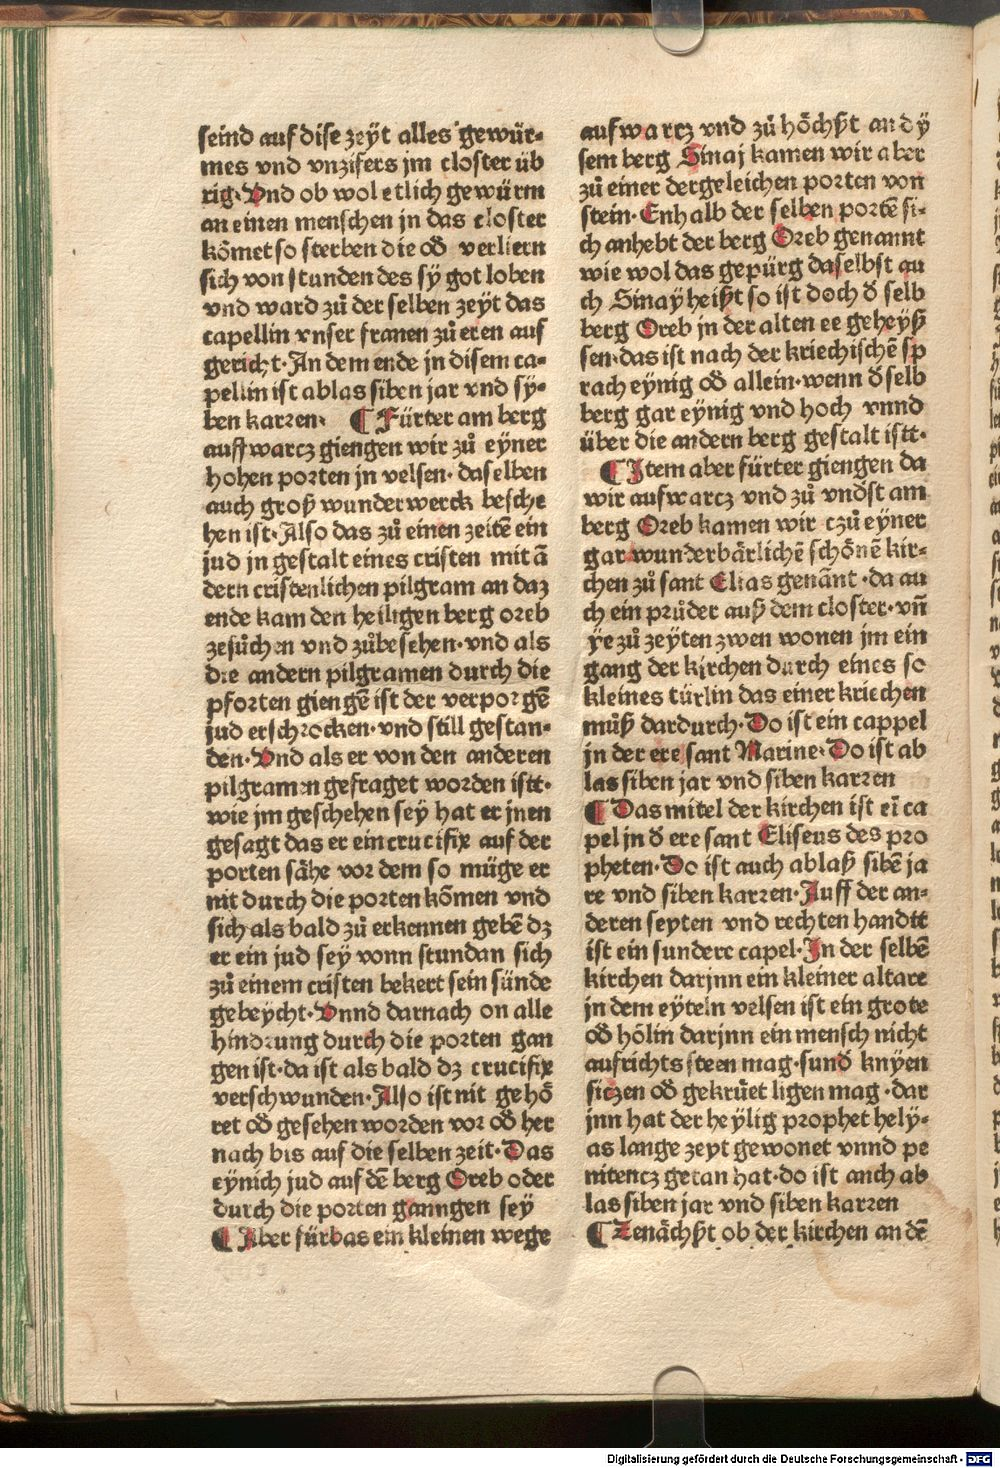 seind auf dise zeÿt alles gewür⸗
mes vnd vnzifers jm closter üb
rig·Vnd ob wol etlich gewürm
an einen menschen jn das closter
kōmet so sterben die oď verliern
sich von stunden des sÿ got loben
vnd ward zů der selben zeÿt das
capellin vnser franen zů eren auf
gericht·An dem ende jn disem ca⸗
pellin ist ablas siben jar vnd sÿ⸗
ben karren· ¶ Fürter am berg
auffwarcz giengen wir zů eyner
hohen porten jn velsen·daselben
auch groß wunderwerck besche
hen ist·Also das zů einen zeitē ein
jud jn gestalt eines cristen mit ā
dern cristenlichen pilgram an daz
ende kam den heiligen berg oreb
zesůchen vnd zůbesehen·vnd als
die andern pilgramen durch die
pforten giengē ist der verporgē
jud erschrocken·vnd still gestan⸗
den·Vnd als er von den anderen
pilgramen gefraget worden istt·
wie jm geschehen seÿ hat er jnen
gesagt das er ein crucifix auf der
porten sähe vor dem so müge er
nit durch die porten kōmen vnd
sich als bald zů erkennen gebē dz
er ein jud seÿ vonn stundan sich
zů einem cristen bekert sein sünde
gebeÿcht·Vnnd darnach on alle
hindrung durch die porten gan
gen ist·da ist als bald dz crucifix
verschwunden·Also ist nit gehö
ret oď gesehen worden vor oď her
nach bis auf die selben zeit·Das
eÿnich jud auf dē berg Oreb oder
durch die porten ganngen seÿ
¶ Aber fürbas ein kleinen wege
aufwarcz vnd zů höchst an dÿ
sem berg Sinaj kamen wir aber
zů einer dergeleichen porten von
stein·Enhalb der selben portē si⸗
ch anhebt der berg Oreb genannt
wie wol das gepürg daselbst au
ch Sinaÿ heißt so ist doch ď selb
berg Oreb jn der alten ee geheÿß
sen·das ist nach der kriechischē sp
rach eÿnig oď allein·wenn ď selb
berg gar eÿnig vnd hoch vnnd
über die andern berg gestalt istt·
¶ Item aber fürter giengen da
wir aufwarcz vnd zů vnďst am
berg Oreb kamen wir czů eÿner
gar wunderbärlichē schönē kir⸗
chen zů sant Elias genānt·da au
ch ein průder auß dem closter·vn̄
ÿe zů zeÿten zwen wonen jm ein
gang der kirchen durch eines so
kleines türlin das einer kriechen
můß dardurch·Do ist ein cappel
jn der ere sant Marine·Do ist ab
las siben jar vnd siben karren
¶ Das mitel der kirchen ist eī ca
pel jn ď ere sant Eliseus des pro
pheten·Do ist auch ablaß sibē ja
re vnd siben karren·Auff der an⸗
deren seyten vnd rechten handtt
ist ein sundere capel·In der selbē
kirchen darjnn ein kleiner altare
jn dem eÿteln velsen ist ein grote
oď hölin darjnn ein mensch nicht
aufrichts steen mag·sunď knÿen
siczen oď gekrůet ligen mag·dar
jnn hat der heÿlig prophet helÿ⸗
as lange zeyt gewonet vnnd pe
nitencz getan hat·do ist auch ab
las siben jar vnd siben karren
¶ Zenächst ob der kirchen an dē
Digitalisierung gefördert durch die Deutsche Forschungsgemeinschaft - DFG